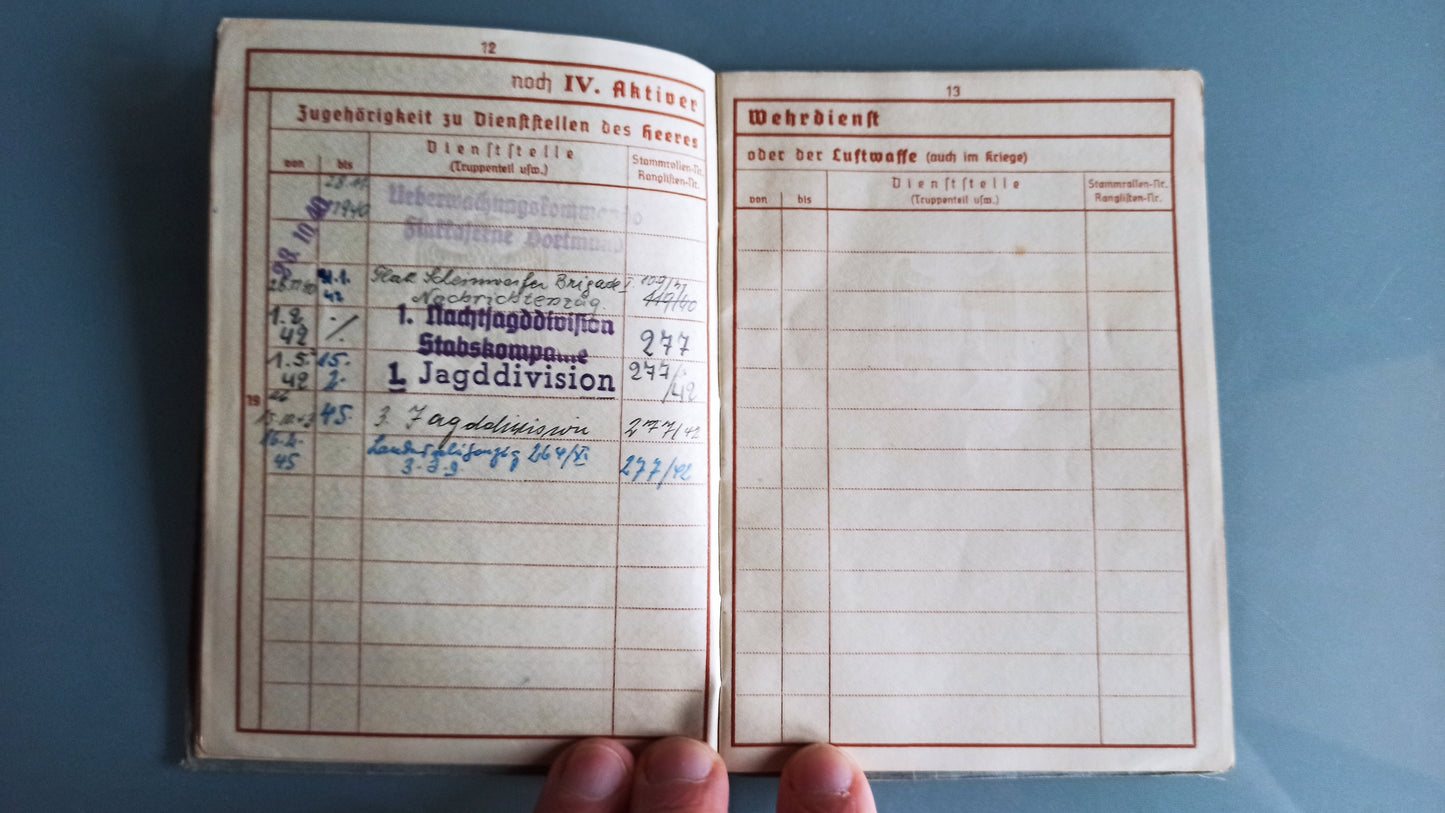 12
noch IV. Aktiver
Zugehörigkeit zu Dienststellen des Heeres
von bis Dienststelle (Truppenteil usw.) Stammrollen-Nr. Ranglisten-Nr.
28.11. 1940
28.10.40 Ueberwachungskommando
Flakkaserne Dortmund
31.1. 42 Flak Scheinwerfer Brigade I 109/41
Nachrichtenzug 449/40
1.2. 42 ./. 1. Nachtjagddivision 277
Stabskompanie
1.5. 42 15. 2. 1. Jagddivision 277/42
19
45. 3. Jagddivision 277/42
16.2. 45 264/XI 277/42
13
Wehrdienst
oder der Luftwaffe (auch im Kriege)
von bis Dienststelle (Truppenteil usw.) Stammrollen-Nr. Ranglisten-Nr.